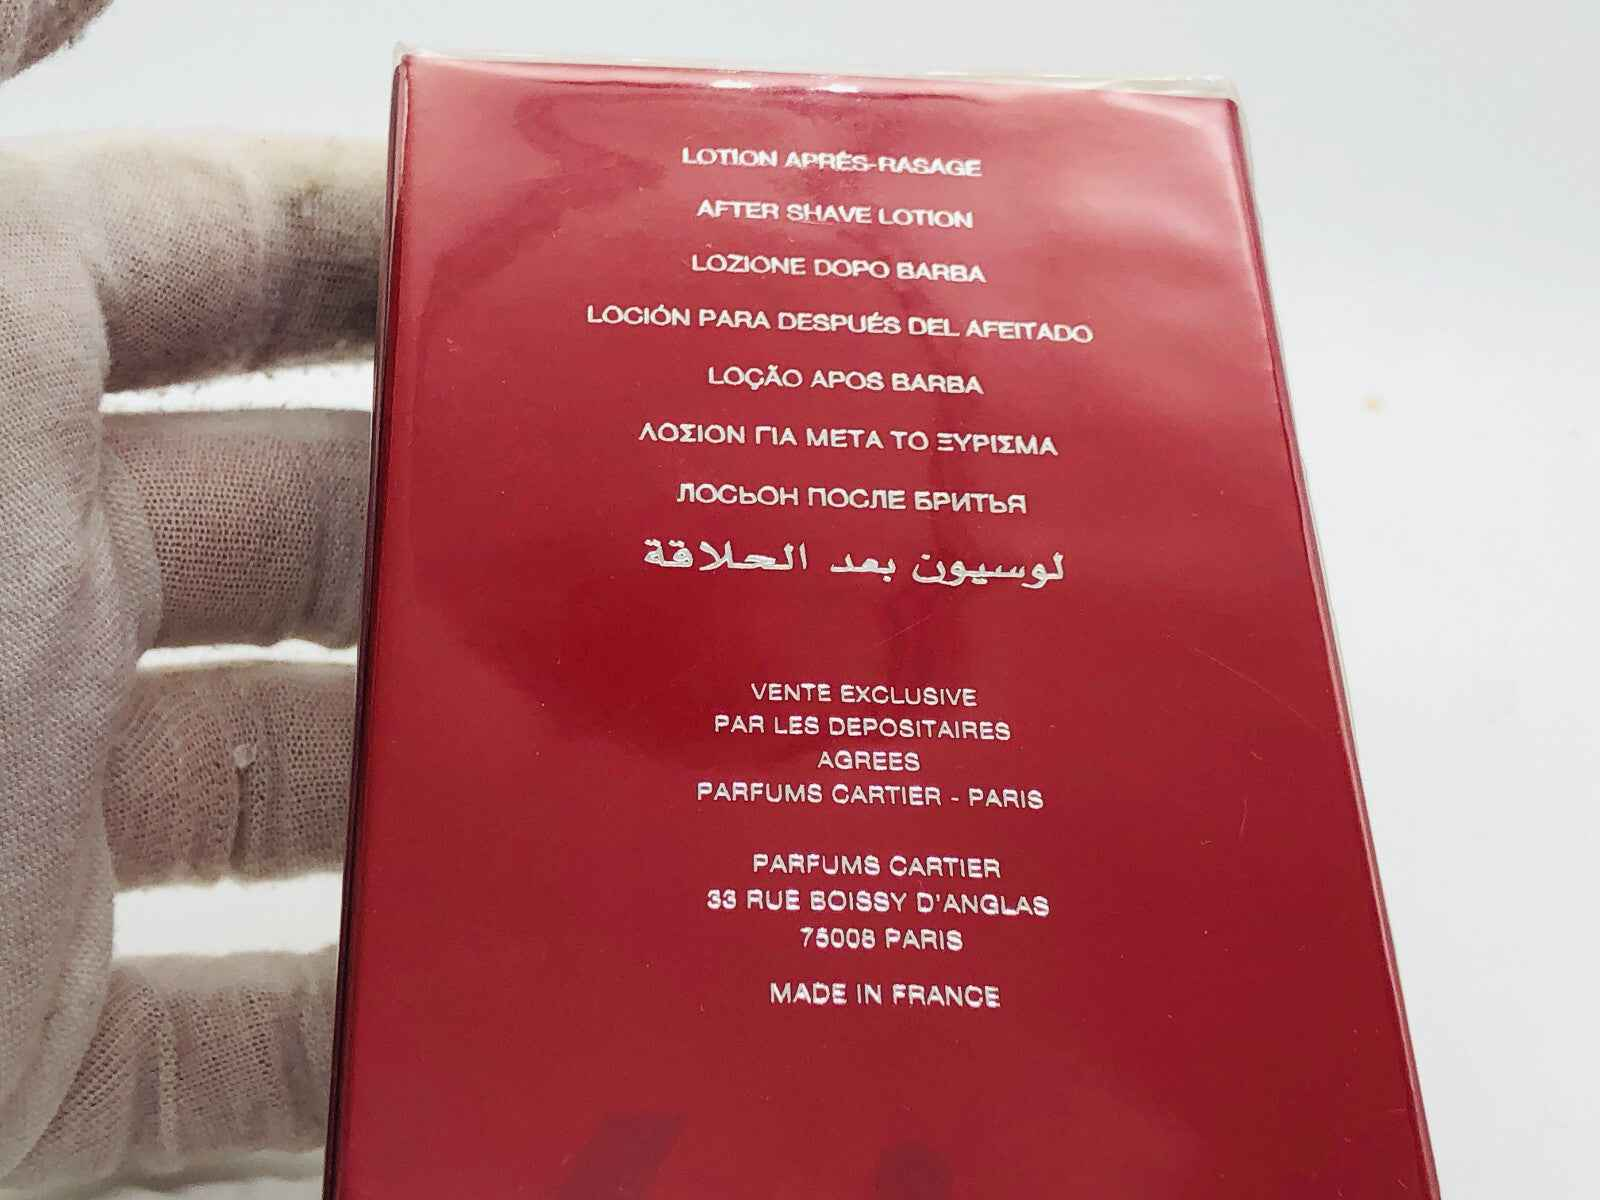 LOTION APRÈS-RASAGE
AFTER SHAVE LOTION
LOZIONE DOPO BARBA
LOCIÓN PARA DESPUÉS DEL AFEITADO
LOÇÃO APOS BARBA
ΛΟΣΙΟΝ ΓΙΑ ΜΕΤΑ ΤΟ ΞΥΡΙΣΜΑ
ЛОСЬОН ПОСЛЕ БРИТЬЯ
لوسيون بعد الحلاقة
VENTE EXCLUSIVE
PAR LES DEPOSITAIRES
AGREES
PARFUMS CARTIER - PARIS
PARFUMS CARTIER
33 RUE BOISSY D'ANGLAS
75008 PARIS
MADE IN FRANCE